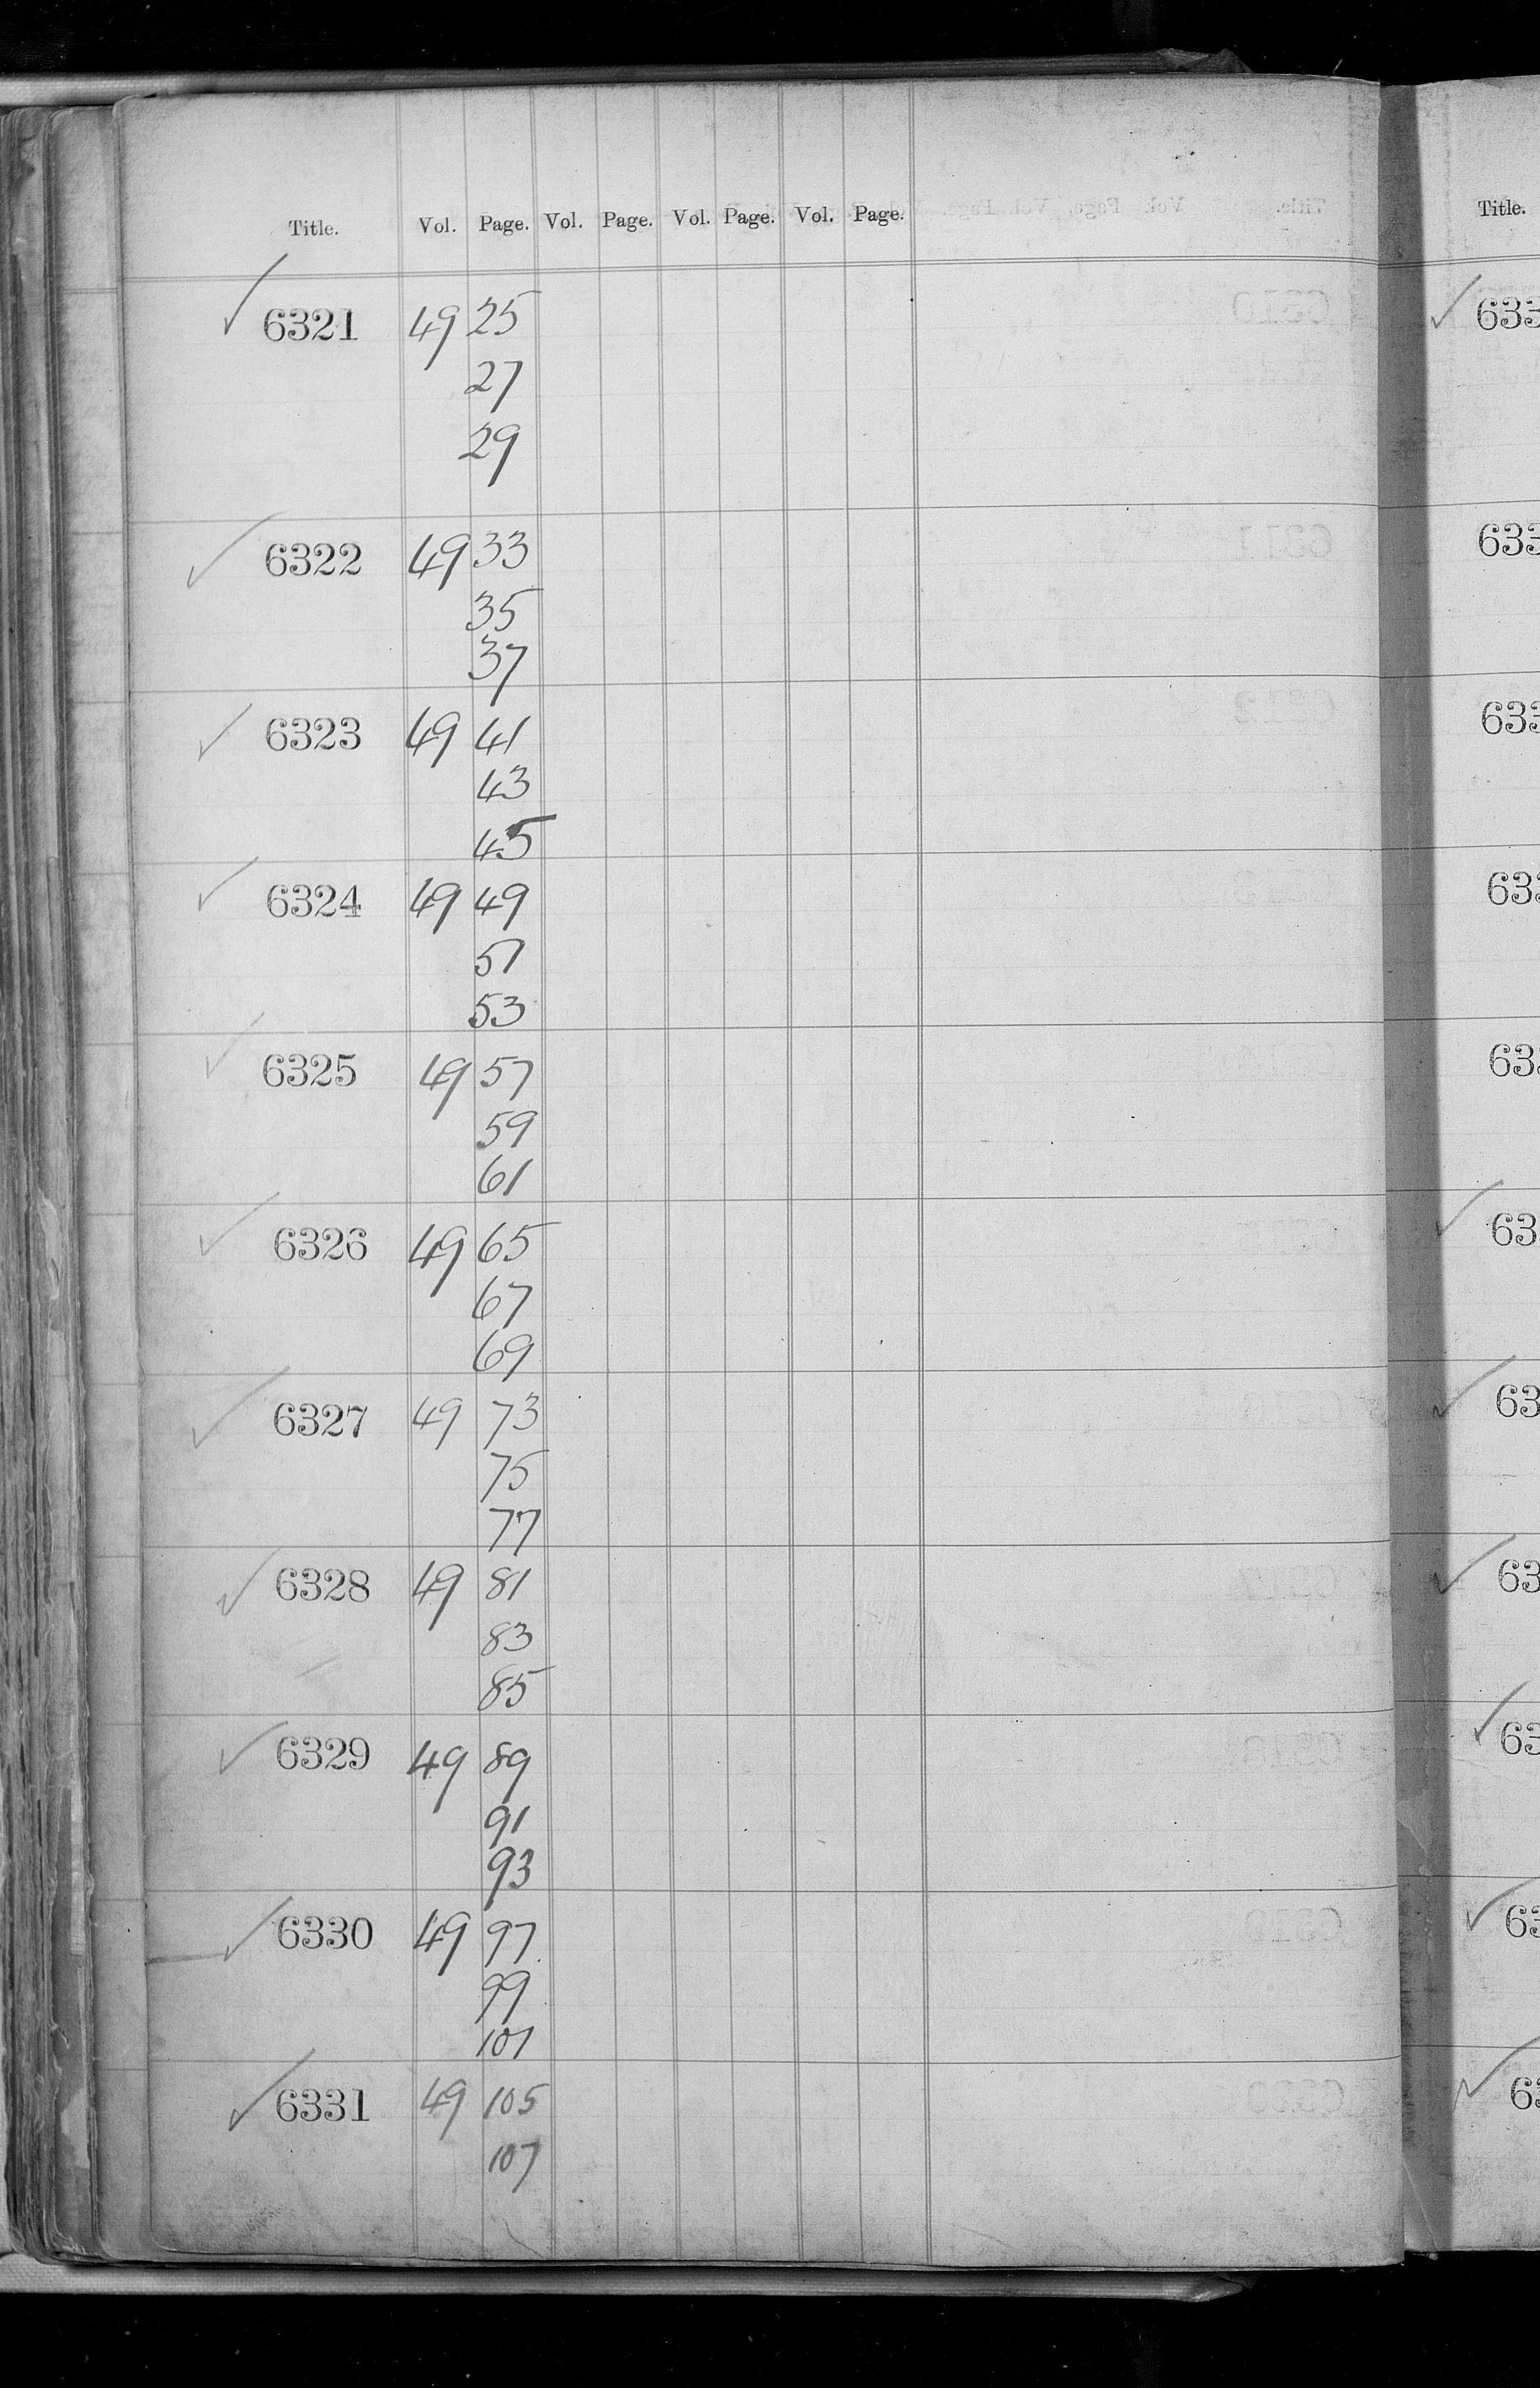 Title. Vol. Page. Vol. Page. Vol. Page. Vol. Page.
6321 49 25
27
29
6322 49 33
35
37
6323 49 41
43
45
6324 49 49
51
53
6325 49 57
59
61
6326 49 65
67
69
6327 49 73
75
77
6328 49 81
83
85
6329 49 89
91
93
6330 49 97
99
101
6331 49 105
107
Title.